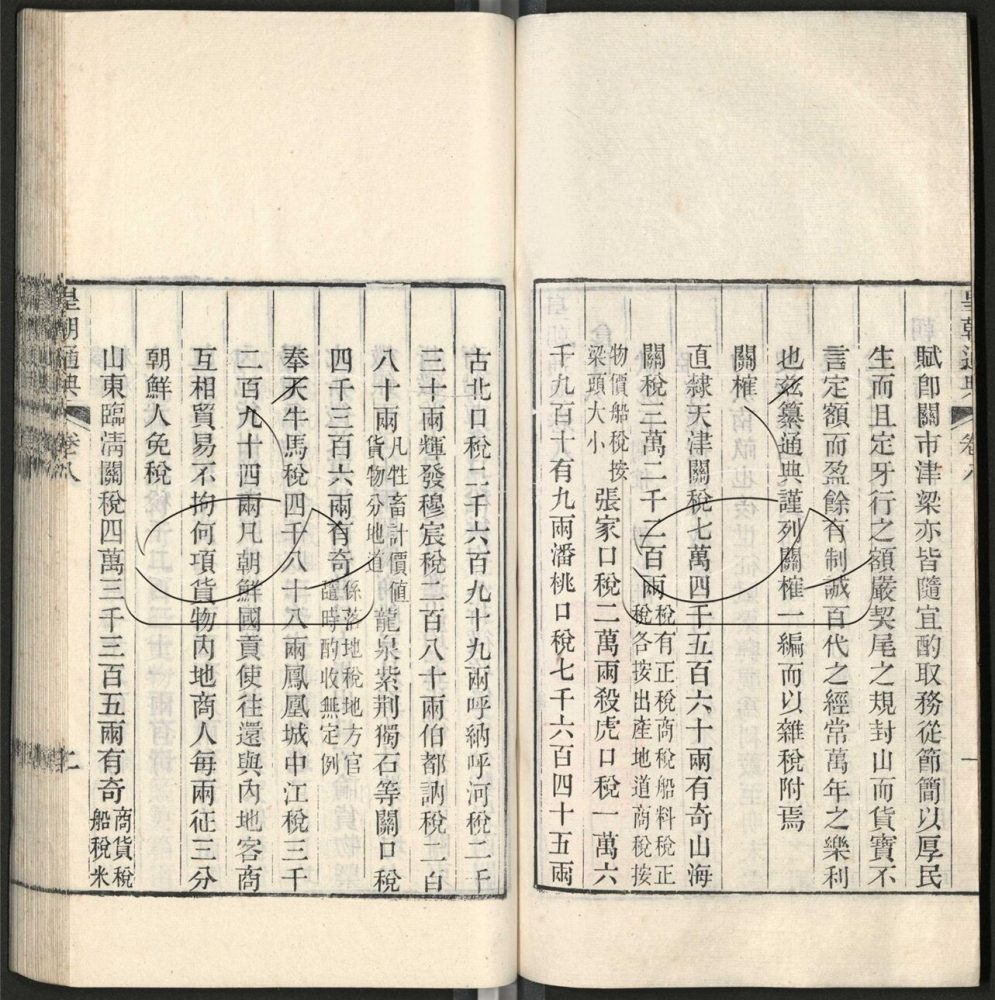 皇朝通典 卷八 一
賦卽關市津梁亦皆隨宜酌取務從節簡以厚民
生而且定牙行之額嚴契尾之規封山而貨寶不
言定額而盈餘有制誠百代之經常萬年之樂利
也兹纂通典謹列關榷一編而以雜稅附焉
關榷
直隸天津關稅七萬四千五百六十兩有奇山海
關稅三萬二千二百兩稅有正稅商稅船料稅正稅各按出產地道商稅按
物價船稅按梁頭大小張家口稅二萬兩殺虎口稅一萬六
千九百十有九兩潘桃口稅七千六百四十五兩
古北口稅二千六百九十九兩呼納呼河稅二千
三十兩輝發穆宸稅二百八十兩伯都訥稅二百
八十兩凡牲畜計價值貨物分地道龍泉紫荆獨石等關口稅
四千三百六兩有奇係落地稅地方官隨時酌收無定例
奉天牛馬稅四千八十八兩鳳凰城中江稅三千
二百九十四兩凡朝鮮國貢使往還與內地客商
互相貿易不拘何項貨物內地商人每兩征三分
朝鮮人免稅
山東臨清關稅四萬三千三百五兩有奇商貨稅船稅米
皇朝通典 卷八